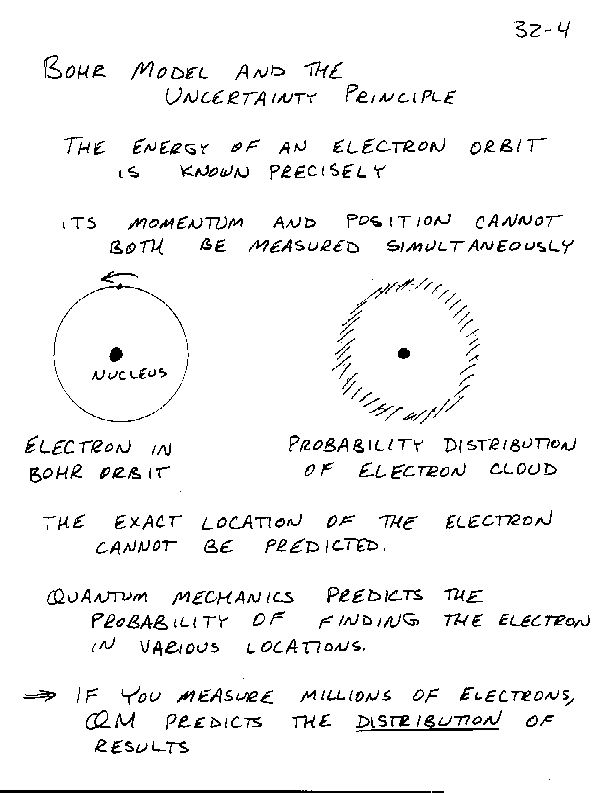 32-4
BOHR MODEL AND THE
UNCERTAINTY PRINCIPLE
THE ENERGY OF AN ELECTRON ORBIT
IS KNOWN PRECISELY
ITS MOMENTUM AND POSITION CANNOT
BOTH BE MEASURED SIMULTANEOUSLY
NUCLEUS
ELECTRON IN
BOHR ORBIT
PROBABILITY DISTRIBUTION
OF ELECTRON CLOUD
THE EXACT LOCATION OF THE ELECTRON
CANNOT BE PREDICTED.
QUANTUM MECHANICS PREDICTS THE
PROBABILITY OF FINDING THE ELECTRON
IN VARIOUS LOCATIONS.
⇒ IF YOU MEASURE MILLIONS OF ELECTRONS,
QM PREDICTS THE DISTRIBUTION OF
RESULTS